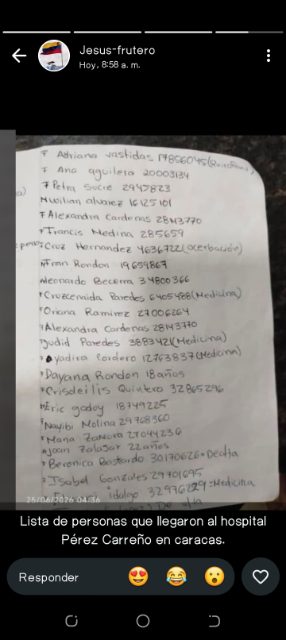 Jesus-frutero
Hoy, 8:58 a. m.
Adriana vastidas 17856045
7 Ana aguilera 20003134
7 Petra Sucre 2945823
alvarez 16125101
7 Alexandra Cardenas 28143770
Francis Medina 285659
Cruz Hernandez 4636722
Fran Rondon 19659867
Leonardo Becerra 34800366
Cruzcenaida Paredes 6405488 (Medicina)
Oriana Ramirez 27006264
Alexandra Cardenas 28143770
Judid Paredes 3883421 (Medicina)
Yadira Cordero 12763837 (Medicina)
Dayana Rondon 18 años
Crisdeilis Quintero 32865296
Eric godoy 18749225
Nayibi Molina 29768360
Zamora 27044236
Salazar 22 años
Berenica Bastardo 30170626
Isabel Gonzales 29701695
Hidalgo 32976229 Medicina
25/06/2026 04:36
Lista de personas que llegaron al hospital
Pérez Carreño en caracas.
Responder